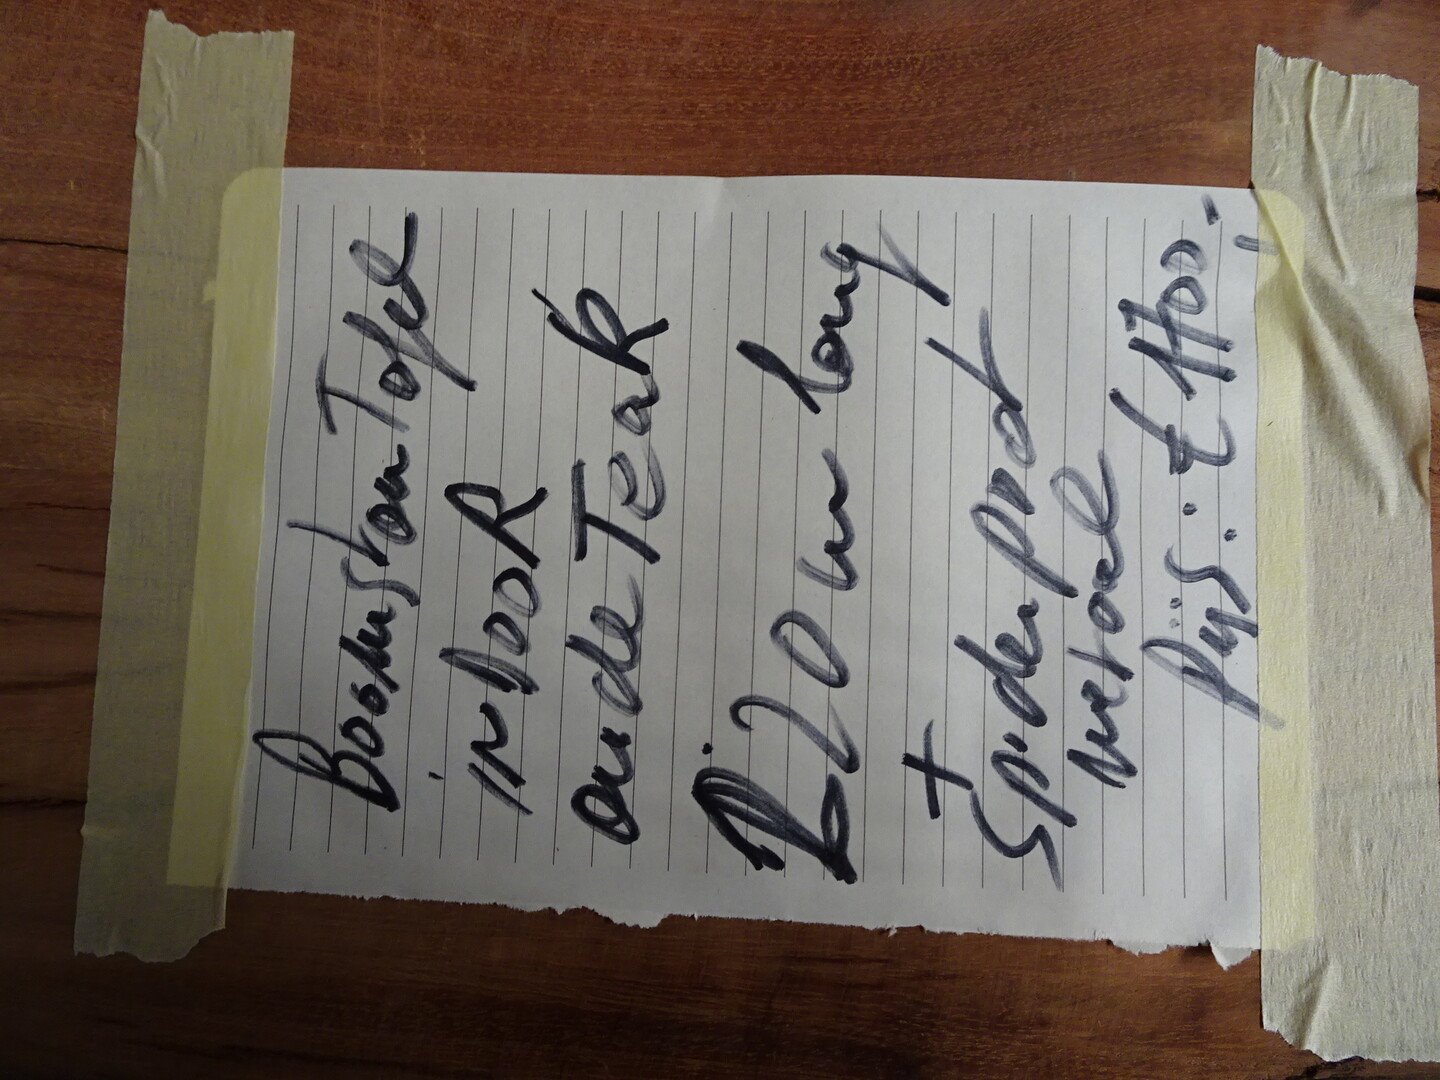 Boomstam Tafel
indoor
oude Teak
220 cm long
+
Spiderpoot
metaal
Prijs: € 1700,-